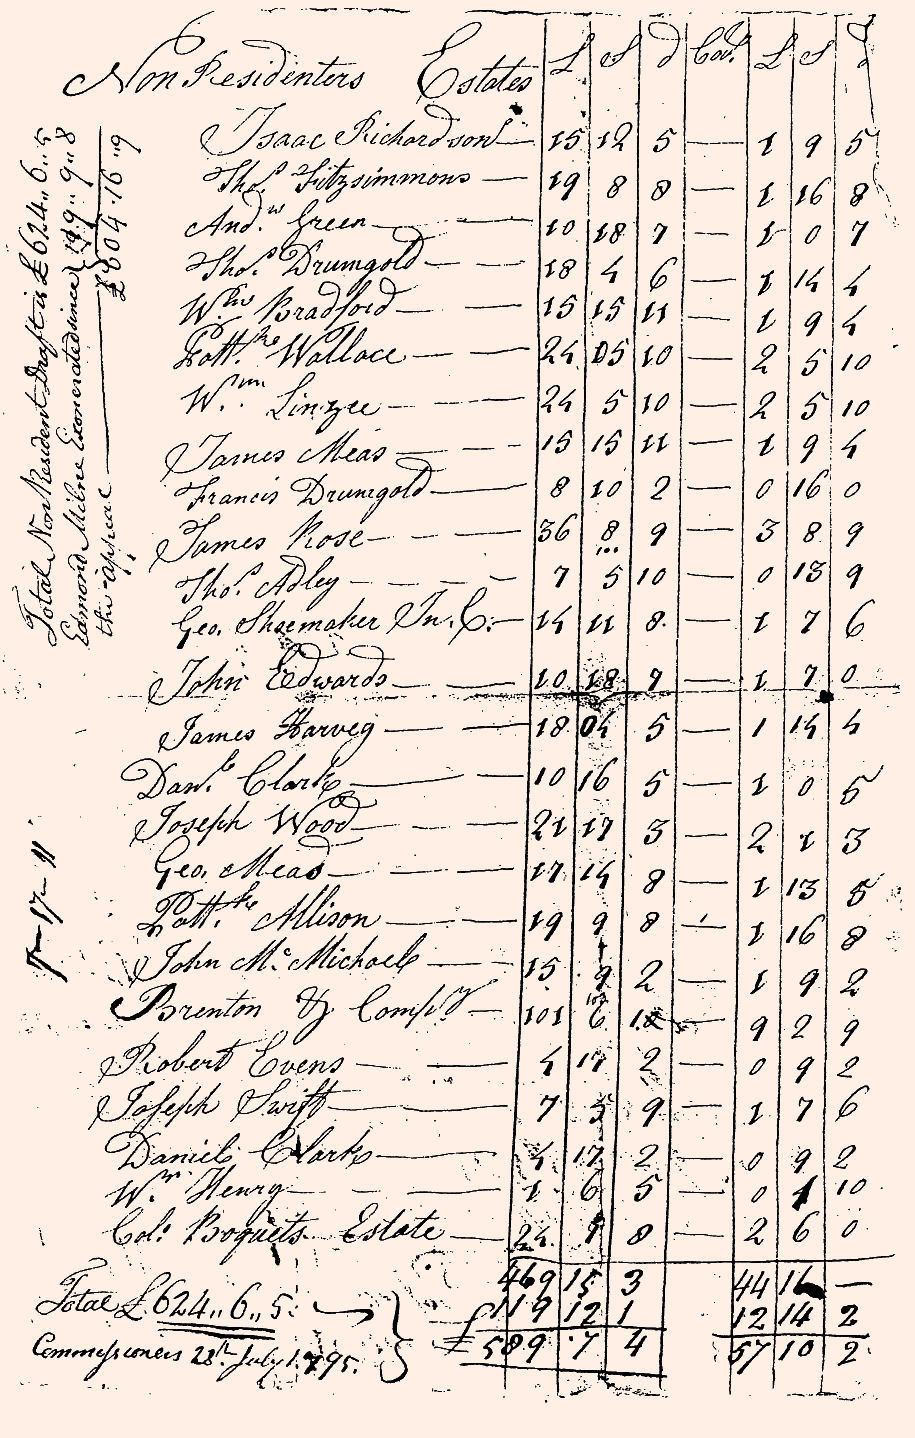 Non Residenters Estates £ S d Cot. £ S d
Isaac Richardson 15 12 5 — 1 9 5
Tho.s Fitzsimmons — 19 8 8 — 1 16 8
And.w Green — 10 18 7 — 1 0 7
Tho.s Drumgold — 18 4 6 — 1 14 4
W.m Bradford — 15 15 11 — 1 9 4
Patt. Wallace — 24 05 10 — 2 5 10
W.m Linzee — 24 5 10 — 2 5 10
James Meas — 15 15 11 — 1 9 4
Francis Drumgold — 8 10 2 — 0 16 0
James Rose — 36 8 9 — 3 8 9
Tho.s Adley — 7 5 10 — 0 13 9
Geo. Shoemaker In. C. — 14 11 8 — 1 7 6
John Edwards — 10 18 7 — 1 7 0
James Harveg — 18 04 5 — 1 14 4
Dan.l Clark — 10 16 5 — 1 0 5
Joseph Wood — 21 17 3 — 2 1 3
Geo. Mead — 17 14 8 — 1 13 5
Patt. Allison — 19 9 8 — 1 16 8
John Mc.Michael — 15 9 2 — 1 9 2
Brenton & Comp.y — 101 6 — 9 2 9
Robert Evens — 4 17 2 — 0 9 2
Joseph Swift — 7 5 9 — 1 7 6
Daniel Clark — 4 17 2 — 0 9 2
W.m Henry — 1 6 5 — 0 1 10
Col.o Boquets Estate — 24 9 8 — 2 6 0
469 15 3 44 16 —
Total £624,, 6,, 5 119 12 1 12 14 2
Commessioners 28th July 1795. £589 7 4 57 10 2
Total Non Resident Draft is £624,, 6,, 5
Edmond Milne Exonerated since 19,, 9,, 8
the appeal £604,, 16,, 9
7 — 17 — 11